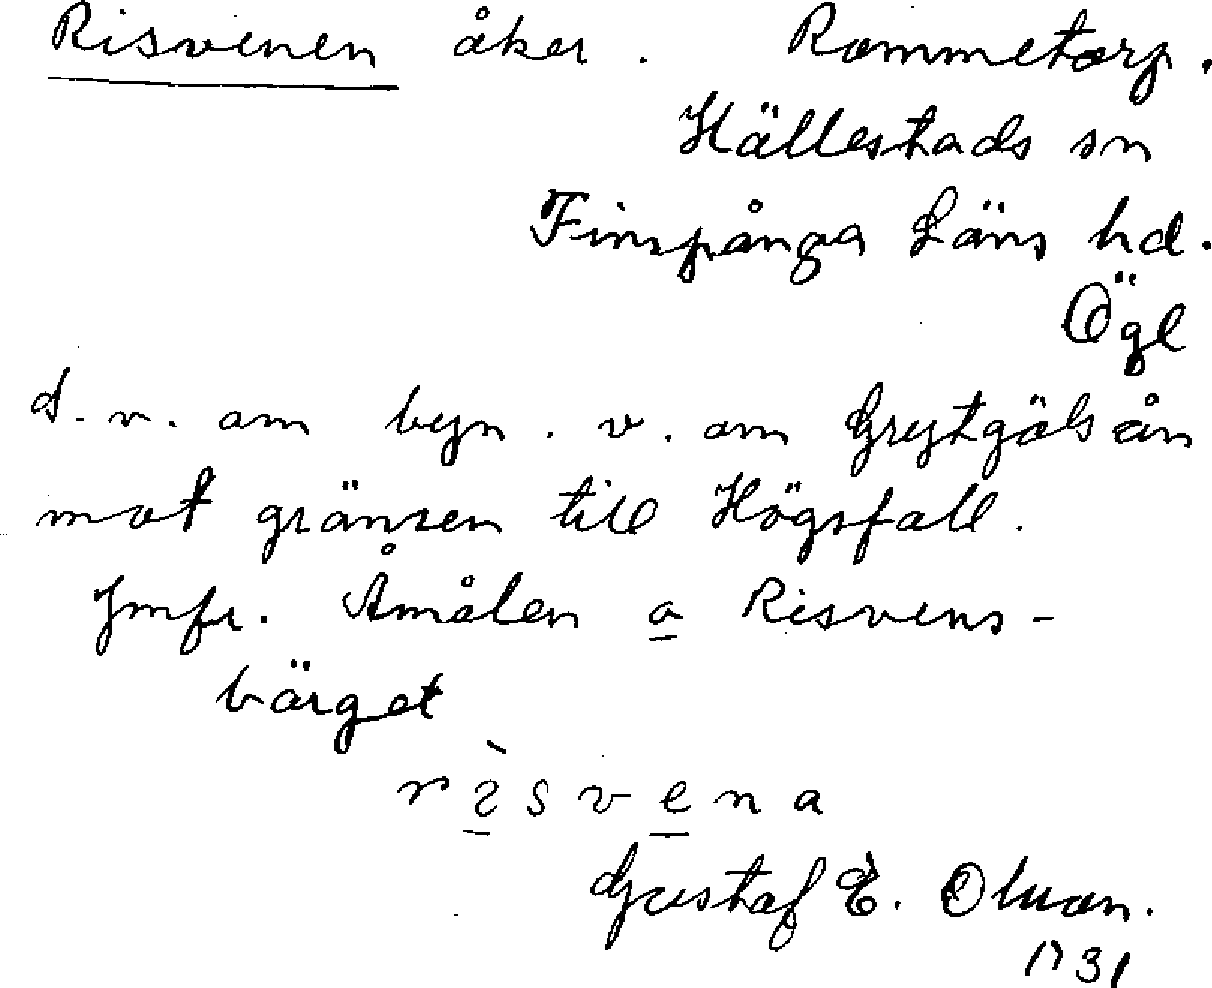 Risvenen åker. Rommetorp.
Hällestads sn
Finspånga Läns hd.
Ögl
d. n. om byn. v. om Grytgölsån
mot gränsen till Högsfall.
Jmfr. Åmålen o Risvens-
bärget
rìsvena
Gustaf E. Olsson.
1931